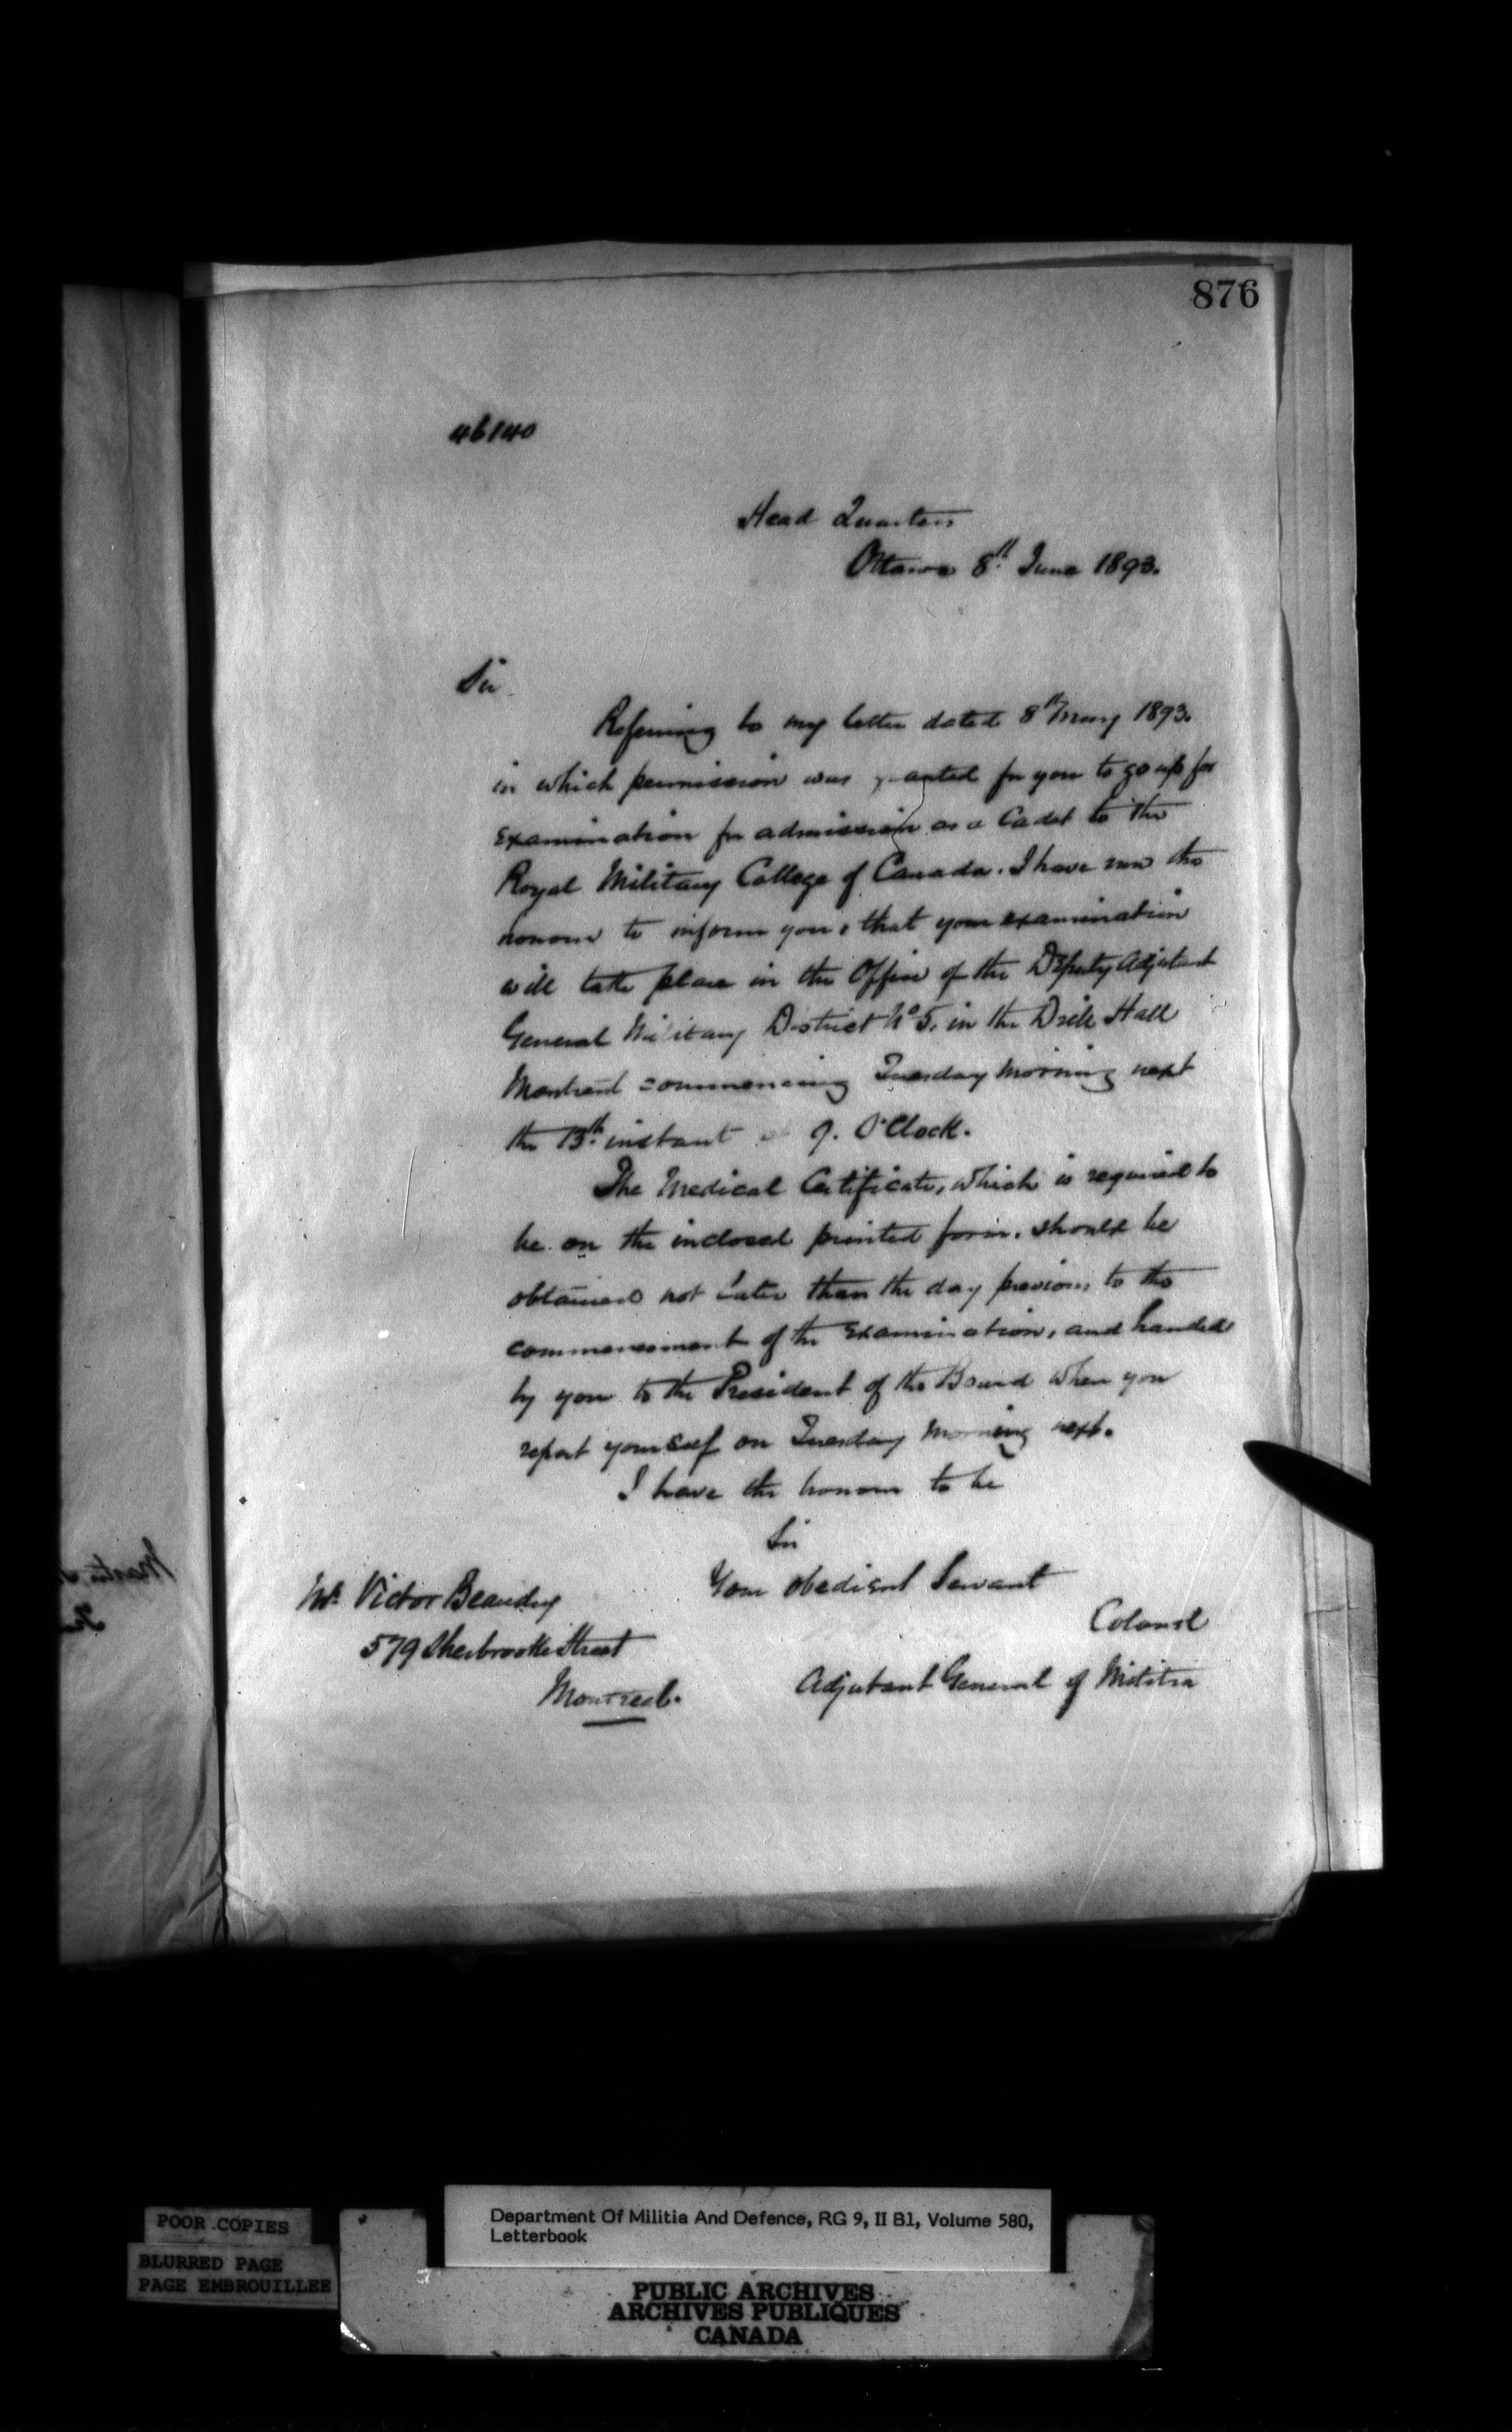 876
46140
Head Quarters
Ottawa 8th June 1893.
Sir
Referring to my letter dated 8th May 1893.
in which permission was granted for you to go up for
examination for admission as a Cadet to the
Royal Military College of Canada. I have now the
honour to inform you, that your examination
will take place in the Office of the Deputy Adjutant
General Military District No 5. in the Drill Hall
Montreal commencing Tuesday morning next
the 13th instant at 9. O'Clock.
The Medical Certificate, which is required to
be on the inclosed printed form. should be
obtained not later than the day previous to the
commencement of the Examination, and handed
by you to the President of the Board when you
report yourself on Tuesday morning next.
I have the honour to be
Sir
Your obedient Servant
Colonel
Adjutant General of Militia
Mr. Victor Beaudry
579 Sherbrooke Street
Montreal.
POOR COPIES
BLURRED PAGE
PAGE EMBROUILLEE
Department Of Militia And Defence, RG 9, II B1, Volume 580,
Letterbook
PUBLIC ARCHIVES
ARCHIVES PUBLIQUES
CANADA